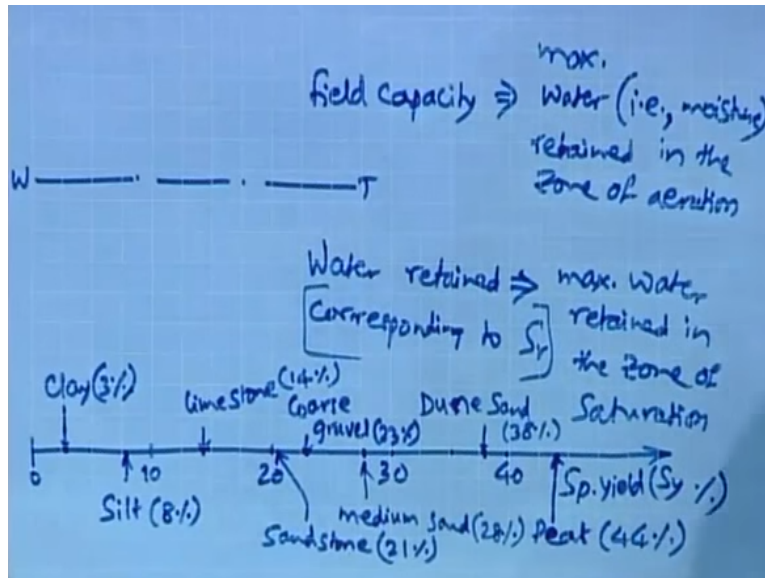 max.
field capacity ⇒ Water (i.e., moisture)
retained in the
Zone of aeration
W T
Water retained ⇒ max. water
[corresponding to Sr] retained in
the zone of
Saturation
Clay (3%)
limestone (14%)
Coarse
gravel (23%)
Dune Sand
(38%)
0 10 20 30 40
Sp. yield (Sy %)
Silt (8%)
Sandstone (21%)
medium sand (28%)
Peat (44%)